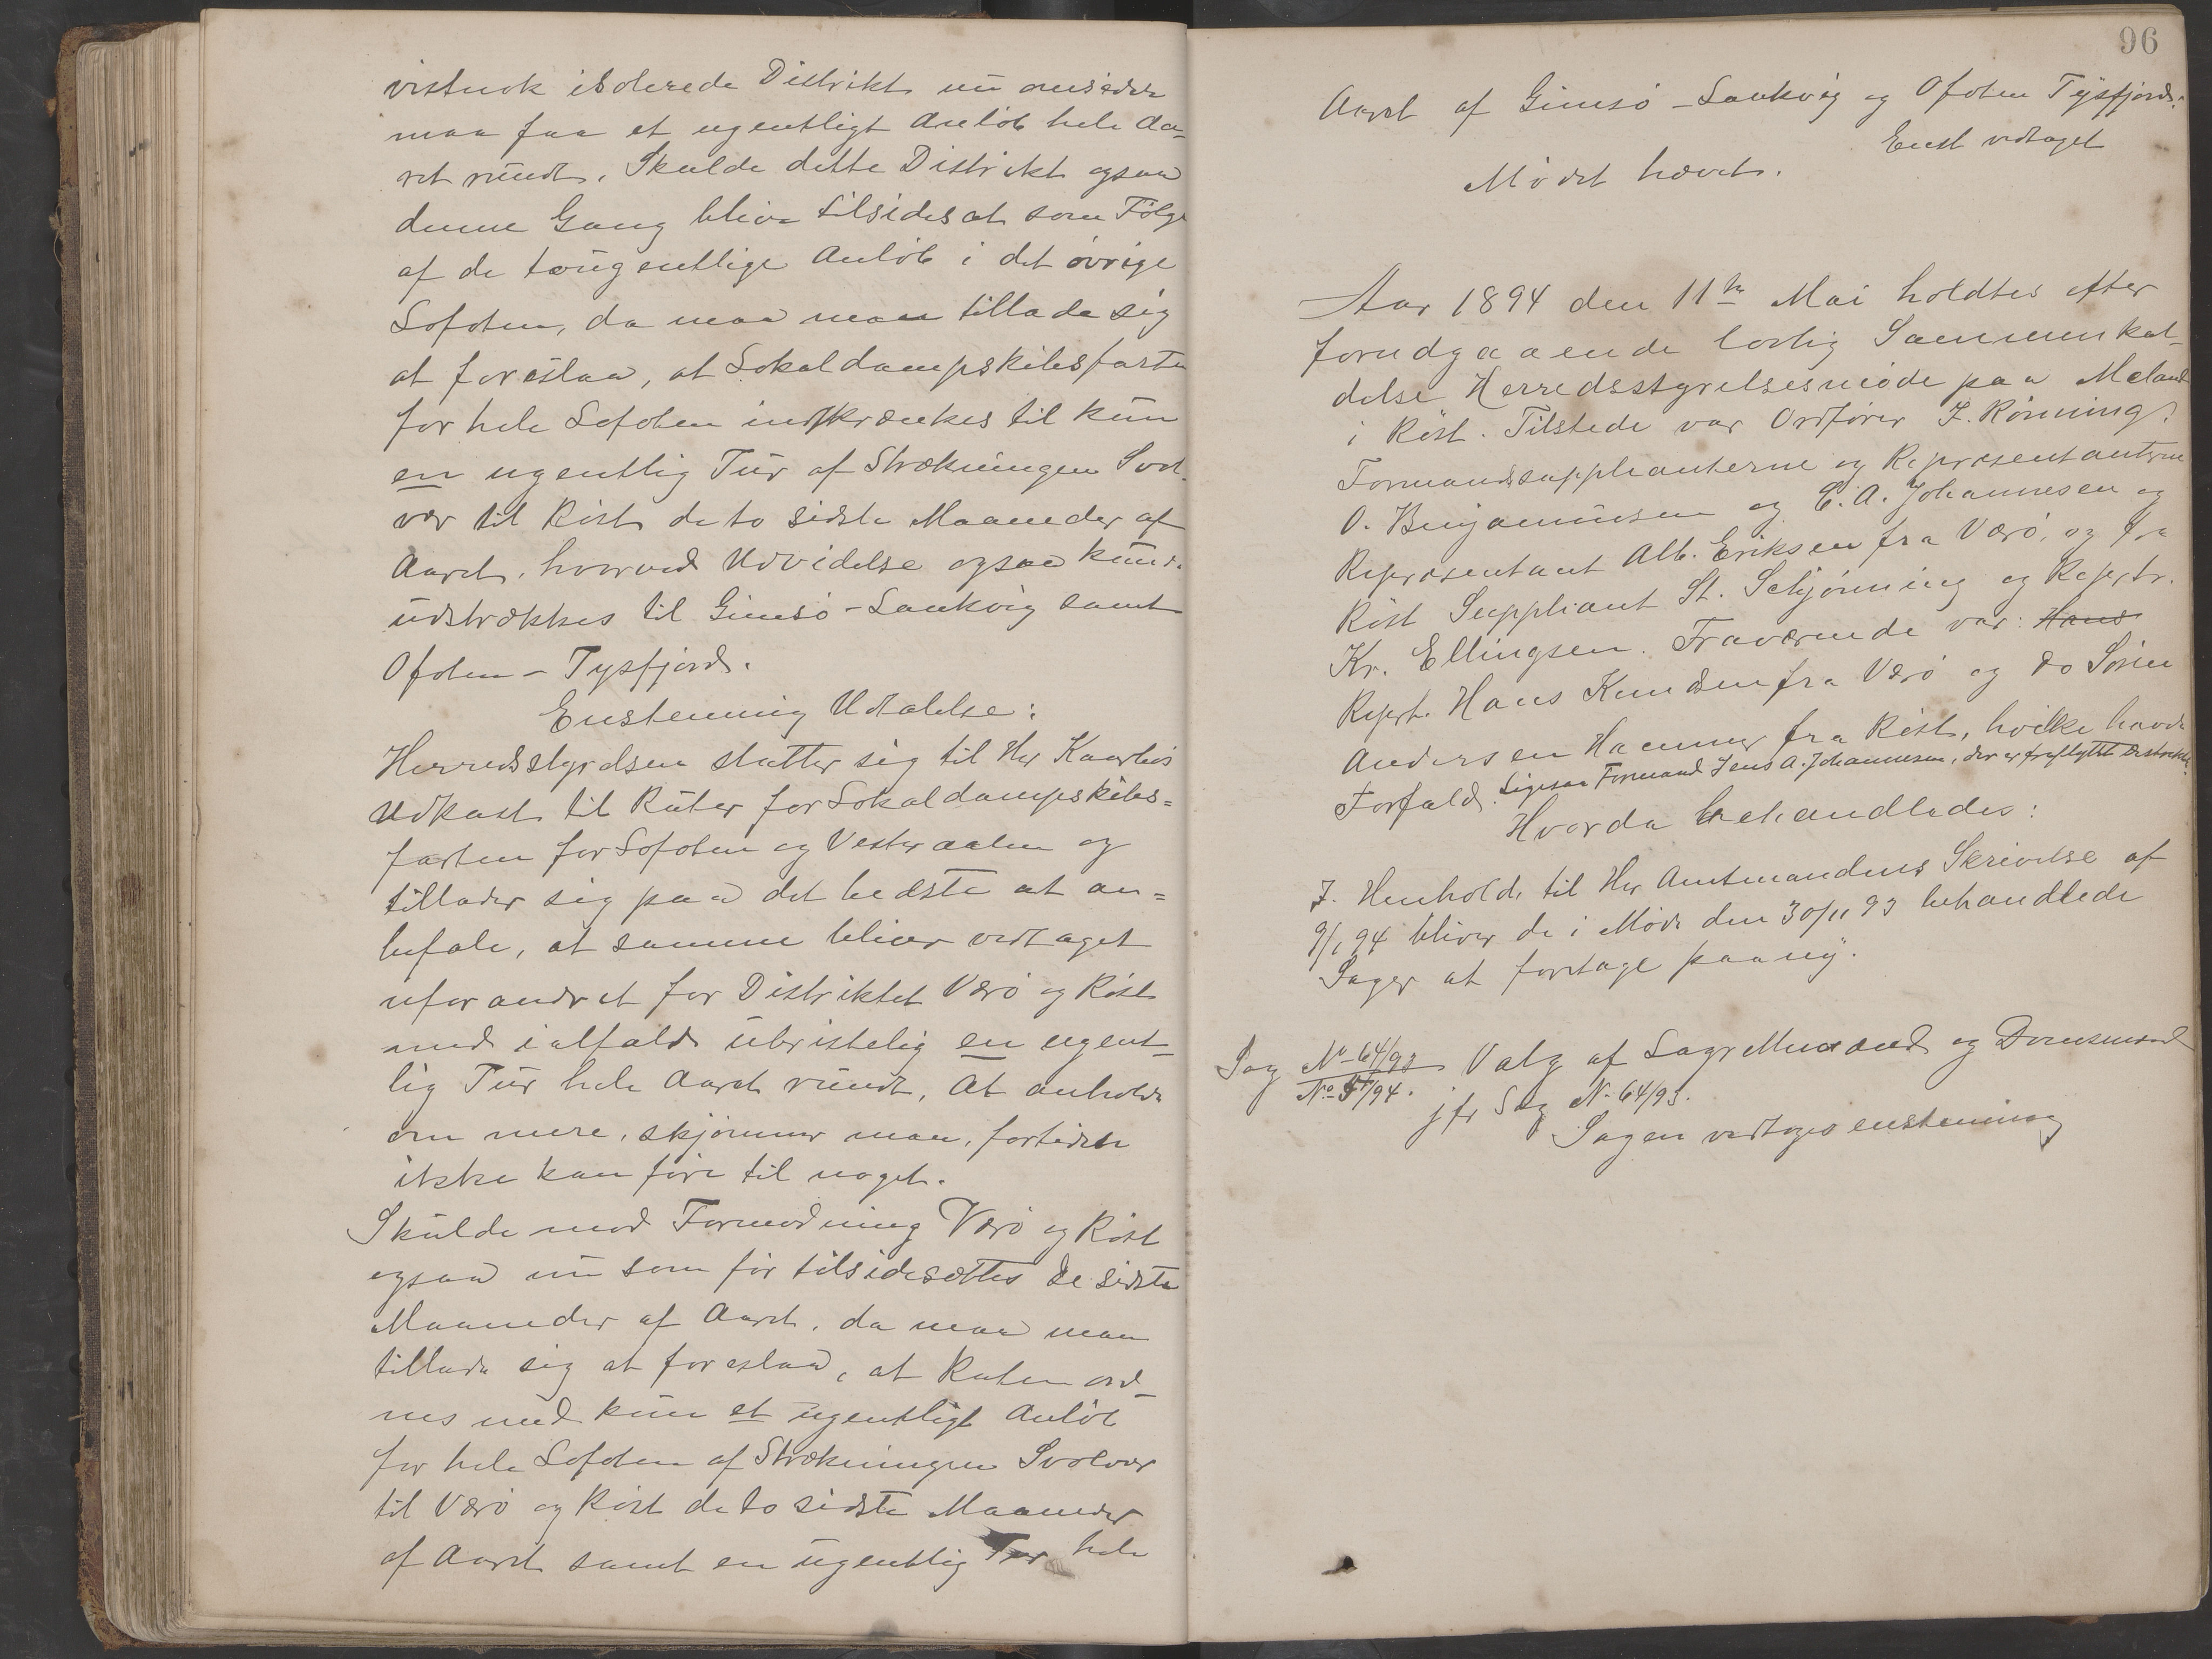 vistnok isolerede Distrikt nu omsider
maa faa et ugentligt Anløb hele Aa-
ret rundt. Skulde dette Distrikt ogsaa
denne Gang blive tilsidesat som Følge
af de tougentlige Anløb i det øvrige
Lofoten, da maa man tillade sig
at foreslaa, at Lokaldampskibsfarten
for hele Lofoten indskrænkes til kun
en ugentlig Tur af Strækningen Svol-
vær til Røst de to sidste Maaneder af
Aaret, hvorved Udvidelse ogsaa kunde
udstrækkes til Gimsø-Laukvig samt
Ofoten-Tysfjord.
Enstemmig Udtalelse:
Herredsstyrelsen slutter sig til Hr Kaarbøs
Udkast til Ruter for Lokaldampskibs=
farten for Lofoten og Vesteraalen og
tillader sig paa det bedste at an=
befale, at samme bliver vedtaget
uforandret for Distriktet Værø og Røst
med ialfald ubristelig en ugent-
lig Tur hele Aaret rundt. At anholde
om mere, skjønner man, fortiden
ikke kan føre til noget.
Skulde mod Formodning Værø og Røst
ogsaa nu som før tilsidesættes de sidste
Maaneder af Aaret, da maa man
tillade sig at foreslaa, at Ruten ord-
nes med kun et ugentligt Anløb
for hele Lofoten af Strækningen Svolvær
til Værø og Røst de to sidste Maaneder
af Aaret samt en ugentlig Tur hele
96
Aaret af Gimsø-Laukvig og Ofoten Tysfjord.
Enst vedtaget
Mødet hævet.
Aar 1894 den 11te Mai holdtes efter
forudgaaende lovlig Sammenkal-
delse Herredsstyrelsesmøde paa Meland
i Røst. Tilstede var Ordfører J. Rønning,
Formandssuppleanterne og Repræsentanterne
O. Benjaminsen og E. A. Johannesen og
Repræsentant Alb. Eriksen fra Værø, og fra
Røst Suppliant St. Schjønning og Reprtr.
Kr. Ellingsen. Fraværende var: Hans
Reprt. Hans Knudsen fra Værø og do Sørin
Andersen Hammer fra Røst, hvilke havde
Forfald. Ligesaa Formand Jens A. Johannesen, der er fraflyttet Distriktet.
Hvorda behandledes:
I Henhold til Hr Amtmandens Skrivelse af
9/1 94 bliver de i Møde den 30/11 93 behandlede
Sager at foretage paany.
Sag No 64/93 Valg af Lagrettemænd og Domsmænd
No 57/94. jfr Sag No 64/93.
Sagen vedtoges enstemmig